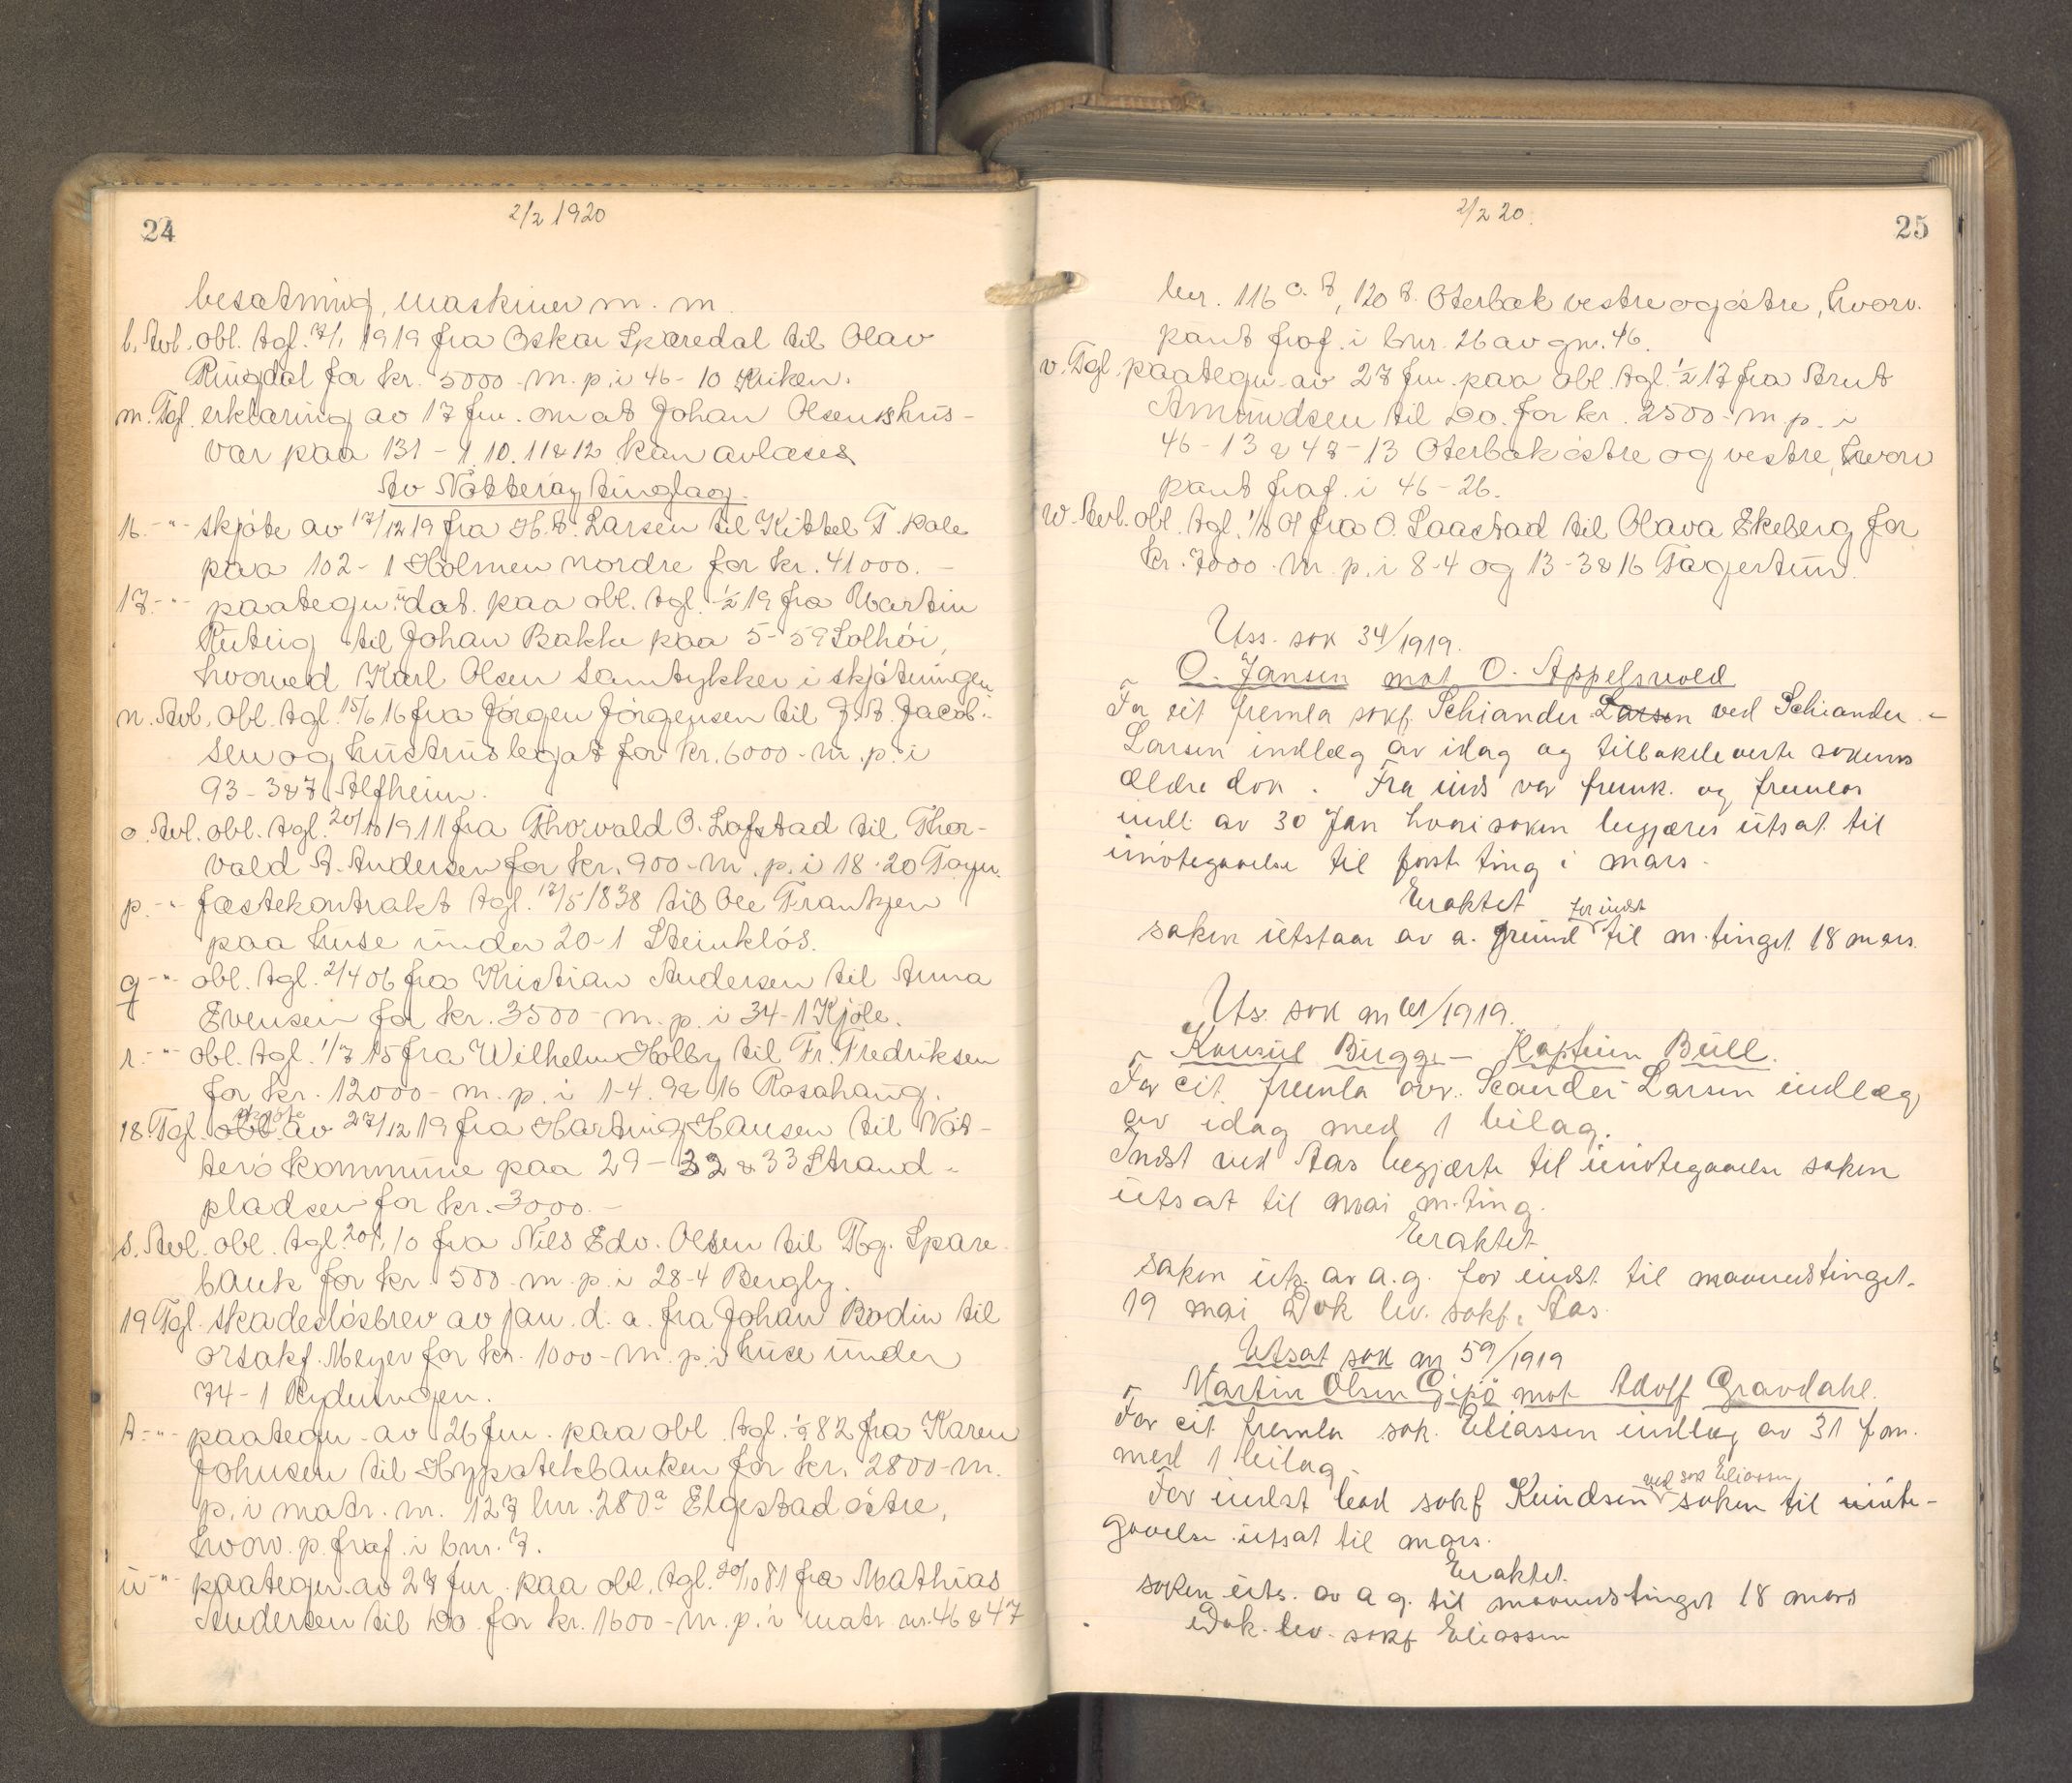 24
2/2 1920
besætning, maskiner m. m.
l. Avl. obl. tgl. 7/1 1919 fra Oskar Sparedal til Olav
Ringdal for kr. 5000 - m. p. i 46 - 10 Kriken.
m. Tgl. erklæring av 17 fm. om at Johan Olsens hus-
var paa 131 - 1, 10, 11 & 12 kan avlæses
Av Nøtterøy tinglag.
16. -"- skjøte av 17/12 19 fra H. A. Larsen til Kittel T. Kale
paa 102 - 1 Holmen nordre for kr. 41000. -
17. -"- paategn. udat. paa obl. tgl. 1/2 19 fra Martin
til Johan Bakke paa 5 - 59 Solhöi,
hvorved Karl Olsen samtykker i skjøtningen.
n. Avl. obl. tgl. 15/6 16 fra Jörgen Jörgensen til J. A. Jacob-
sen og hustrus legat for kr. 6000 - m. p. i
93 - 3 & 7 Alfheim.
o. Avl. obl. tgl. 20/10 1911 fra Thorvald O. Lofstad til Thor-
vald A. Andersen for kr. 900 - m. p. i 18 - 20
p. -"- fæstekontrakt tgl. 17/5 1838 til Ole Frantzen
paa huse under 20 - 1 Steinklös.
q -"- obl. tgl. 2/4 06 fra Kristian Andersen til Anna
Evensen for kr. 3500 - m. p. i 34 - 1 Kjöle.
r. -"- obl. tgl. 1/7 15 fra Wilhelm Holby til Fr. Fredriksen
for kr. 12000 - m. p. i 1 - 4. 9 & 16 Rosahaug.
skjøte
18. Tgl. obl. av 27/12 19 fra Hartvig Hansen til Nøt-
terö kommune paa 29 - 32 & 33 Strand-
pladsen for kr. 3000. -
s. Avl. obl. tgl. 20/1 10 fra Nils Edv. Olsen til Tbg. Spare
bank for kr. 500 - m. p. i 28 - 4 Bergly.
19 Tgl. skadeslösbrev av jan. d. a. fra Johan Bodin til
orsakf. Meyer for kr. 1000 - m. p. i huse under
74 - 1 Rydningen.
t -"- paategn. av 26 fm. paa obl. tgl. 1/9 82 fra Karen
Johnsen til Hypotekbanken for kr. 2800 - m.
p. i matr. nr. 127 lnr. 280a Elgestad östre,
hvorv. p. fraf. i bnr. 7.
u -"- paategn. av 27 fm. paa obl. tgl. 20/10 81 fra Mathias
Andersen til Do. for kr. 1600 - m. p. i matr. nr. 46 & 47
2/2 20.
25
lnr. 116 c. &, 120 &. Oterbæk vestre og östre, hvorv.
pant fraf. i bnr. 26 av gnr. 46.
v. Tgl. paategn. av 27 fm. paa obl. tgl. 1/2 17 fra Arnt
Amundsen til Do. for kr. 2500 - m. p. i
46 - 13 & 47 - 13 Oterbæk östre og vestre, hvorv
pant fraf. i 46 - 26.
w. Avl. obl. tgl. 1/8 01 fra O. Saastad til Olava Ekeberg for
kr. 7000 - m. p. i 8 - 4 og 13 - 3 & 16 Fagertun.
Uss. sak 34/1919.
O. Jansen mot O. Appelsvold
For cit fremla sakf. Schiander Larsen ved Schiander -
Larsen indlæg av idag og tilbakeleverte sakens
ældre dok. Fra inds var fremk. og fremlas
indl. av 30 Jan hvori saken begjæres utsat til
imøtegaaelse til første ting i mars.
Eraktet
for indst
saken utstaar av a. grund til m. tinget 18 mars.
Uts. sak nr 61/1919.
Konsul Bugge - Kaptein Bull.
For cit. fremla ovr. Scander Larsen indlæg
av idag med 1 bilag.
Indst ved Aas begjærte til imøtegaaelse saken
utsat til mai m-ting.
Eraktet
saken uts. av a. g. for indst til maanedstinget.
19 mai Dok lev. sakf. Aas.
Utsat sak nr 59/1919
Martin Olsen Gipö mot Adolf Gravdahl.
For cit fremla sak. Eliassen indlæg av 31 f m.
med 1 bilag.
ved sak Eliassen
For indst bad sakf Knudsen saken til imøte-
gaaelse utsat til mars.
Eraktet.
saken uts. av a g. til maanedstinget 18 mars
Dok. lev. sakf Eliassen